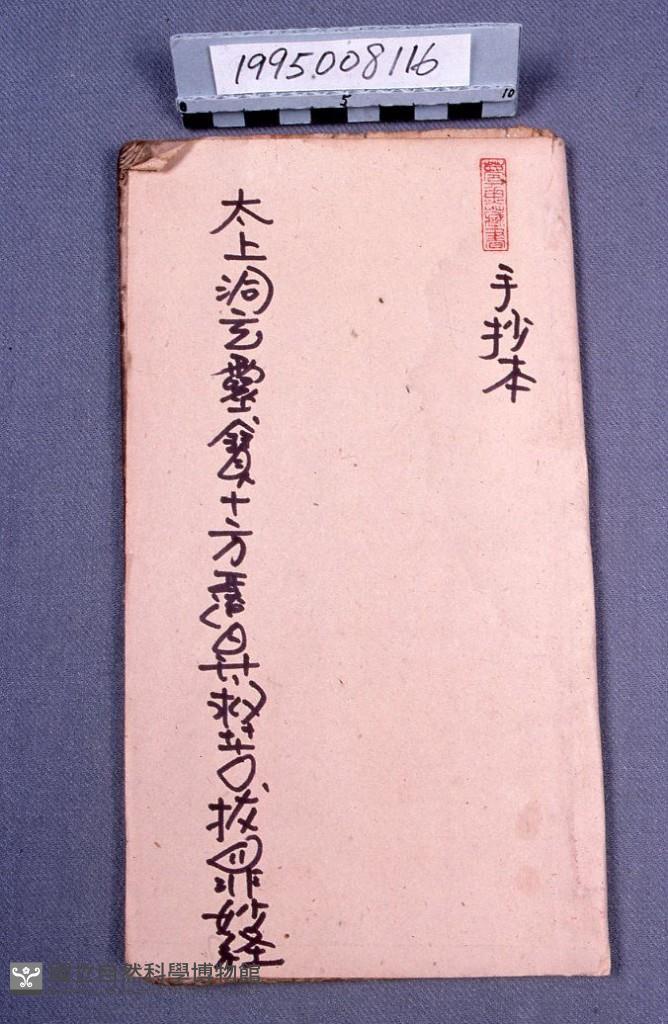 1995008116
5
10
手抄本
太上洞玄靈寶十方薩真救苦拔罪妙經
國立自然科學博物館